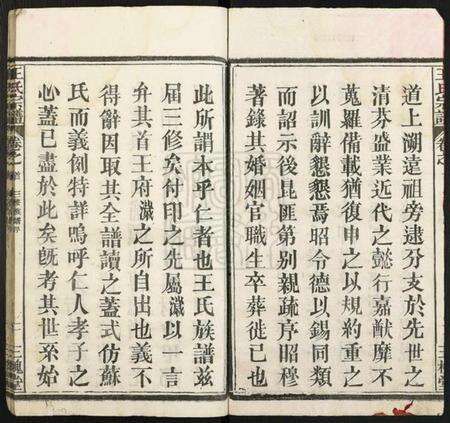 道上溯遠祖旁逮分支於先世之
清芬盛業近代之懿行嘉猷靡不
蒐羅備載猶復申之以規約重之
以訓辭懇懇焉昭令德以錫同類
而詔示後昆匪第別親疏序昭穆
著錄其婚姻官職生卒葬徙已也
王氏宗譜
卷之首
三槐堂
此所謂本乎仁者也王氏族譜兹
屆三修矣付印之先屬瀻以一言
弁其首王府瀻之所自出也義不
得辭因取其全譜讀之蓋式仿蘇
氏而義例特詳嗚呼仁人孝子之
心蓋已盡於此矣旣考其世系始